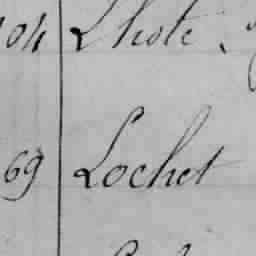 104 Lhote
69 Lochet